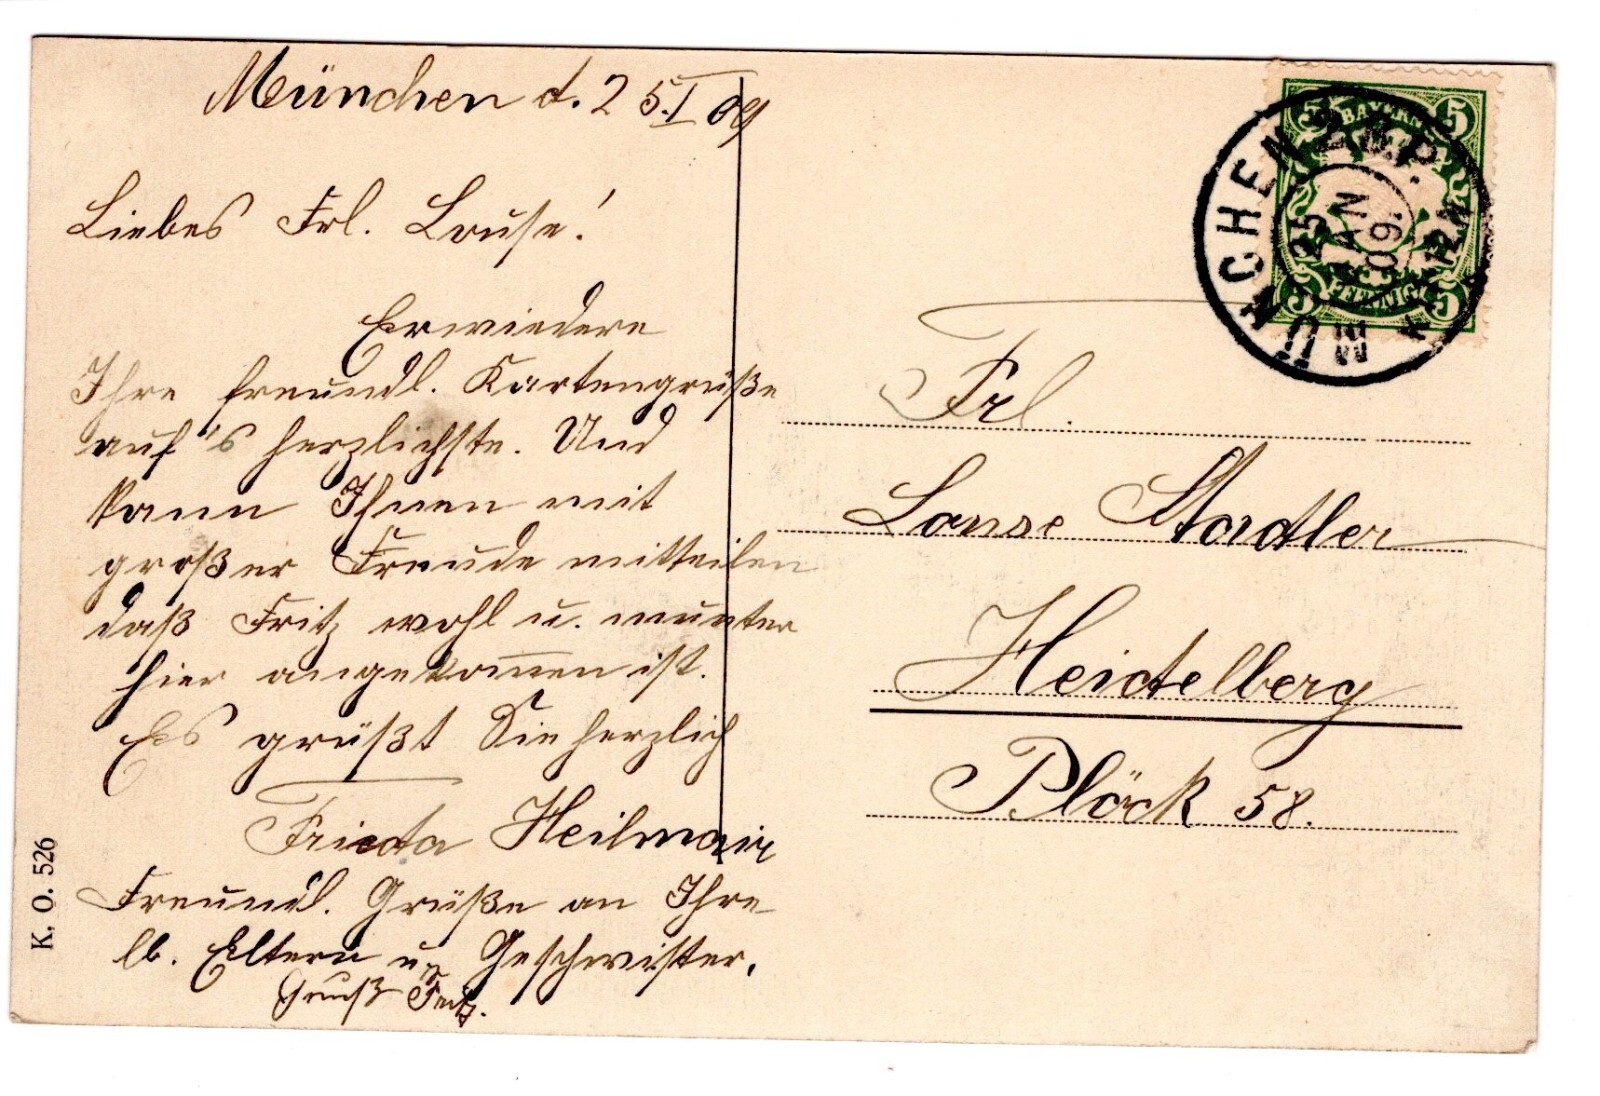 München d. 25.I 09
Liebes Frl. Louise!
Erwiedere
Ihre freundl. Kartengrüße
auf's herzlichste. Und
kann Ihnen mit
großer Freude mitteilen
daß Fritz wohl u. munter
hier angekom̅en ist.
Es grüßt Sie herzlich
Frieda Heilmair
Freundl. Grüße an Ihre
lb. Eltern u. Geschwister.
Gruß Fritz.
K. O. 526
BAYERN
5 5
PFENNIG
5 5
MÜNCHEN 2 B.P.
25
JAN
09.
12N
Frl.
Louse Stadler
Heidelberg
Plöck 58.